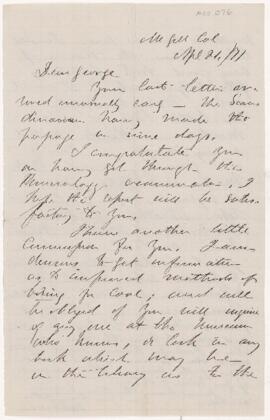 McGill Col
Apl 21, /71
Dear George
Your last letter ar
rived unusually early — the Scan
dinavian having made the
passage in nine days.
I congratulate you
on having got through the
Mineralogy examination. I
hope the report will be satis
factory to you.
I have another little
Commission for you. I am
desirous to get information
as to improved methods of
boring for Coal; and will
be obliged if you will inquire
of any one at the Museum
who knows, or look in any
book which may be
in the library as to the